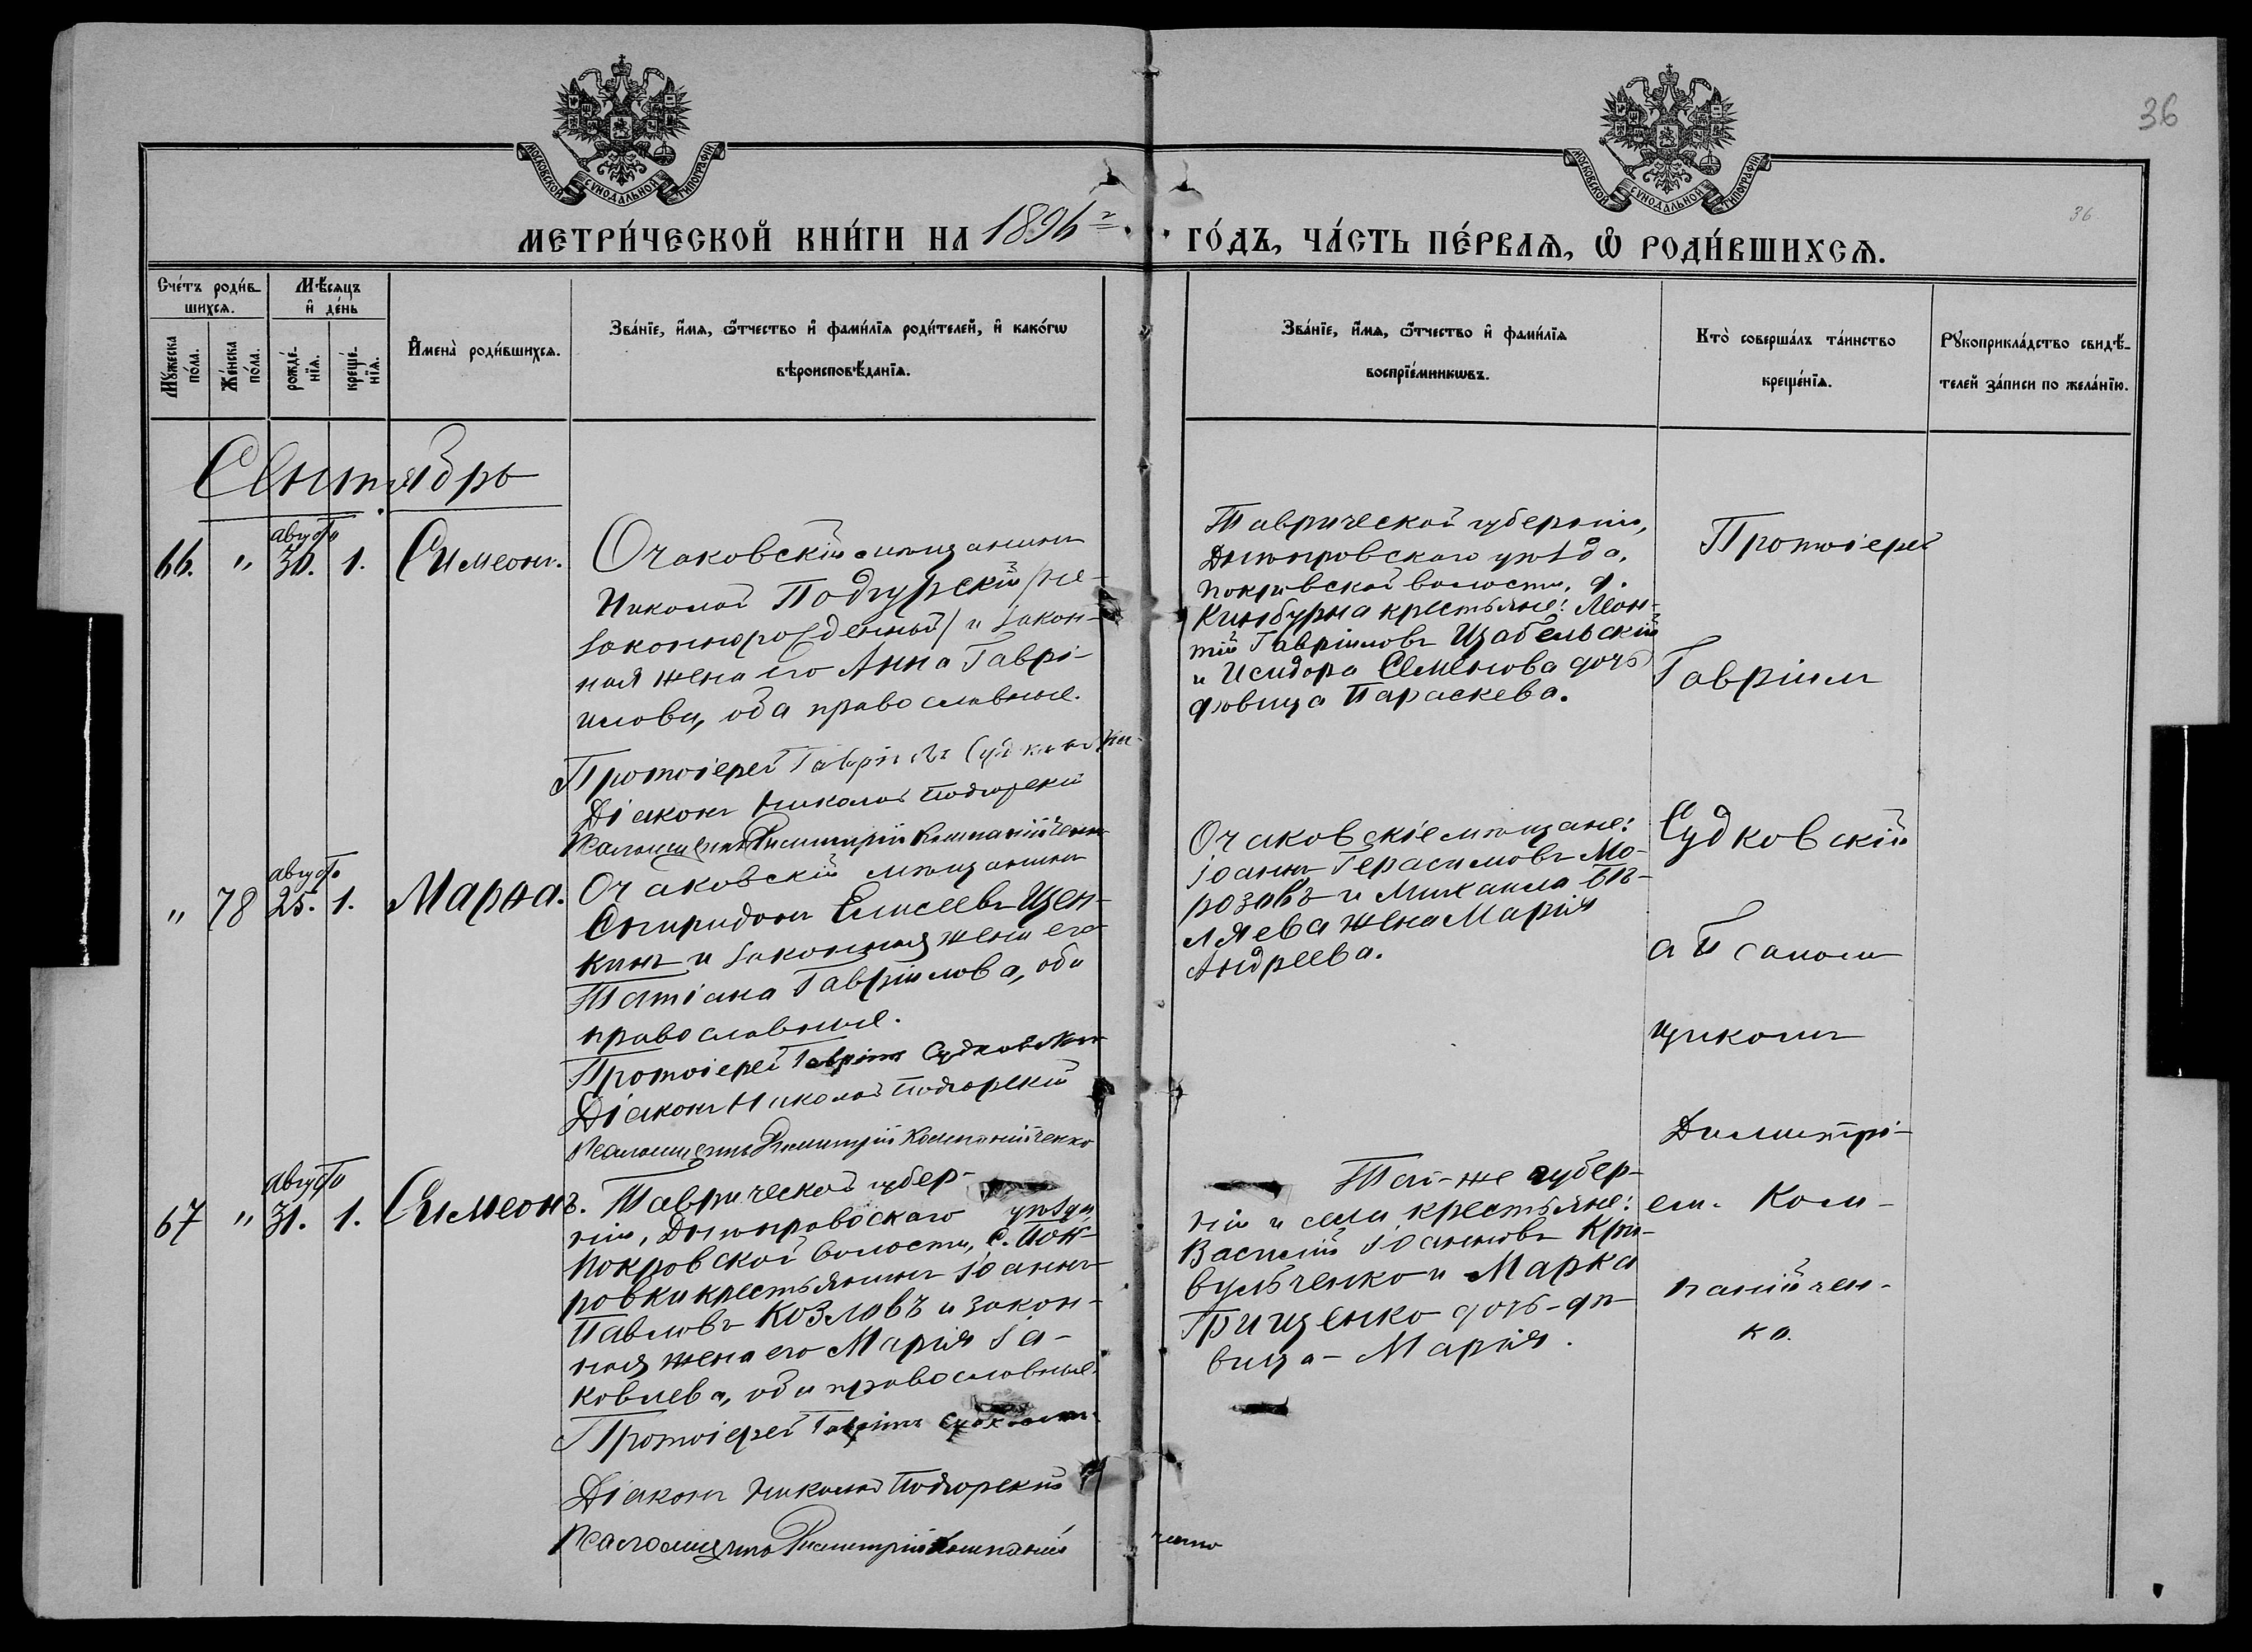 36
36
МОСКОВСКОЙ СѴНОДАЛЬНОЙ ТИПОГРАФІИ
МОСКОВСКОЙ СѴНОДАЛЬНОЙ ТИПОГРАФІИ
МЕТРИ́ЧЕСКОЙ КНИ́ГИ НА 1896 г.
ГО́ДЪ, ЧА́СТЬ ПЕ́РВАЯ, Ѡ҆ РОДИ́ВШИХСЯ.
Сче́тъ роди́в-
шихся.
Мꙋ́жеска
по́ла.
Же́нска
по́ла.
Мѣ́сяцъ
и҆ де́нь
рожде́-
нїя.
креще́-
нїя.
И҆мена̀ роди́вшихся.
Зва́нїе, и҆́мя, ѻ҆́тчество и҆ фами́лїя роди́телей, и҆ како́гѡ
вѣроисповѣ́данїя.
Зва́нїе, и҆́мя, ѻ҆́тчество и҆ фами́лїя
воспрїе́мникѡвъ.
Кто̀ соверша́лъ та́инство
креще́нїя.
Рꙋкоприкла́дство свидѣ́-
телей за́писи по жела́нїю.
Сентябрь
66. " августа 30. 1. Симеонъ.
Очаковскій мѣщанинъ
Николай Подгурскій /не-
законнорожденный/ и закон-
ная жена его Анна Гаврі-
илова, оба православные.
Протоіерей Гавріилъ Судковскій
Діаконъ Николай Подгорскій
Псаломщикъ Димитрій Компанійченко
Таврической губерніи,
Днѣпровскаго уѣзда,
Покровской волости, д.
Кинбурна крестьяне: Леон-
тій Гавріиловъ Щабельскій
и Исидора Семенова дочь
дѣвица Параскева.
" 78 августа 25. 1. Марѳа.
Очаковскій мѣщанинъ
Спиридонъ Елисеевъ Щен-
кинъ и законная жена его
Татіана Гавріилова, оба
православные.
Протоіерей Гавріилъ Судковскій
Діаконъ Николай Подгорскій
Псаломщикъ Димитрій Компанійченко
Очаковскіе мѣщане:
Іоаннъ Герасимовъ Мо-
розовъ и Михаила Бѣ-
ляева жена Марія
Андреева.
67 " августа 31. 1. Симеонъ.
Таврической губер-
ніи, Днѣпровскаго уѣзда
Покровской волости, с. Пок-
ровки крестьянинъ Іоаннъ
Павловъ Козловъ и закон-
ная жена его Марія Іа-
ковлева, оба православные.
Протоіерей Гавріилъ Судковскій
Діаконъ Николай Подгорскій
Псаломщикъ Димитрій Компаній
ченко
Той-же губер-
ніи и села крестьяне:
Василій Іоанновъ Кри-
вульченко и Марка
Грищенко дочь-дѣ-
вица-Марія.
Протоіерей
Гавріилъ
Судковскій
съ Псалом
щикомъ
Димитрі-
емъ Ком-
панійчен-
ко.